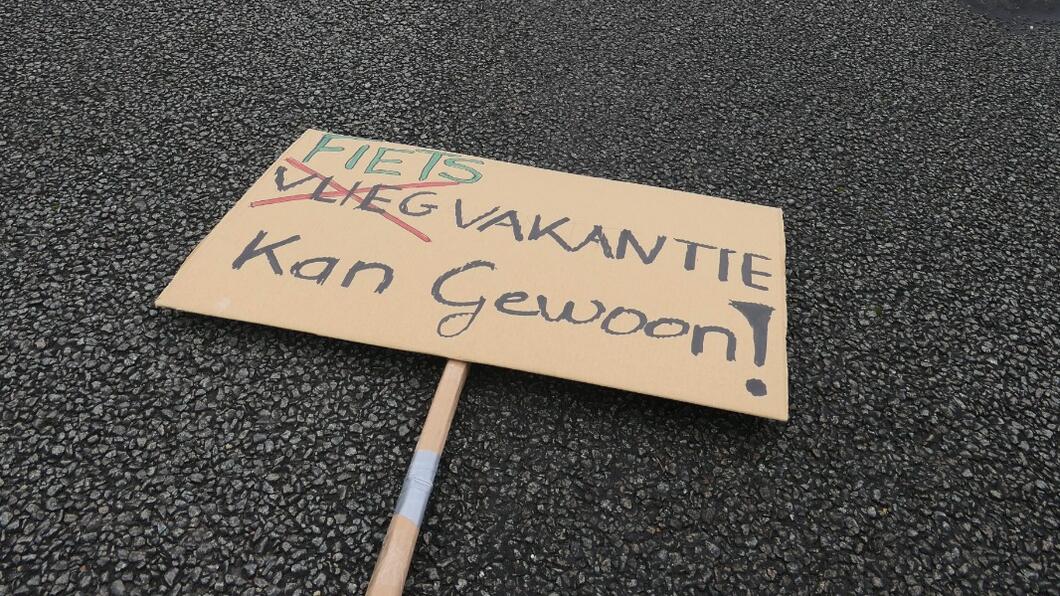 FIETS
VLIEG VAKANTIE
Kan Gewoon!